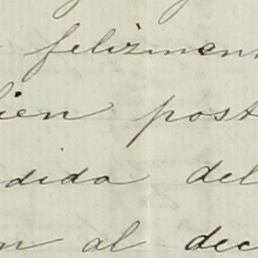 felizment
ien post
dida del
n al dec